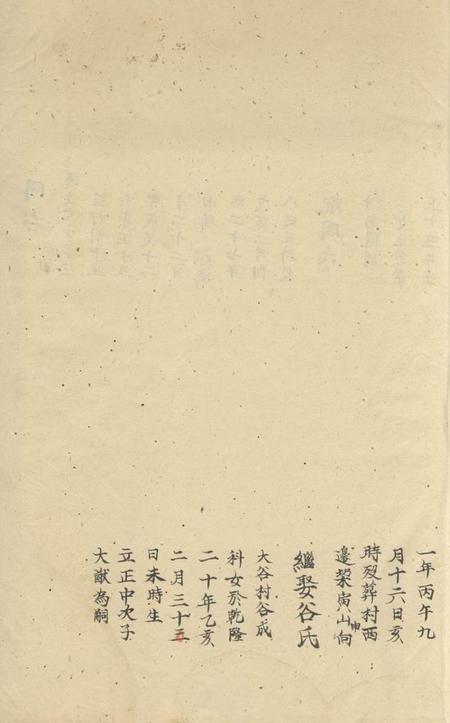 一年丙午九
月十六日亥
時歿葬村西
邊塋寅山申向
繼娶谷氏
大谷村谷成
科女於乾隆
二十年乙亥
二月三十五
日未時生
立正中次子
大猷為嗣